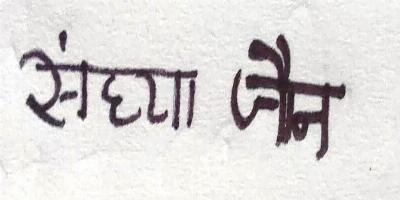 संघ्या जैन